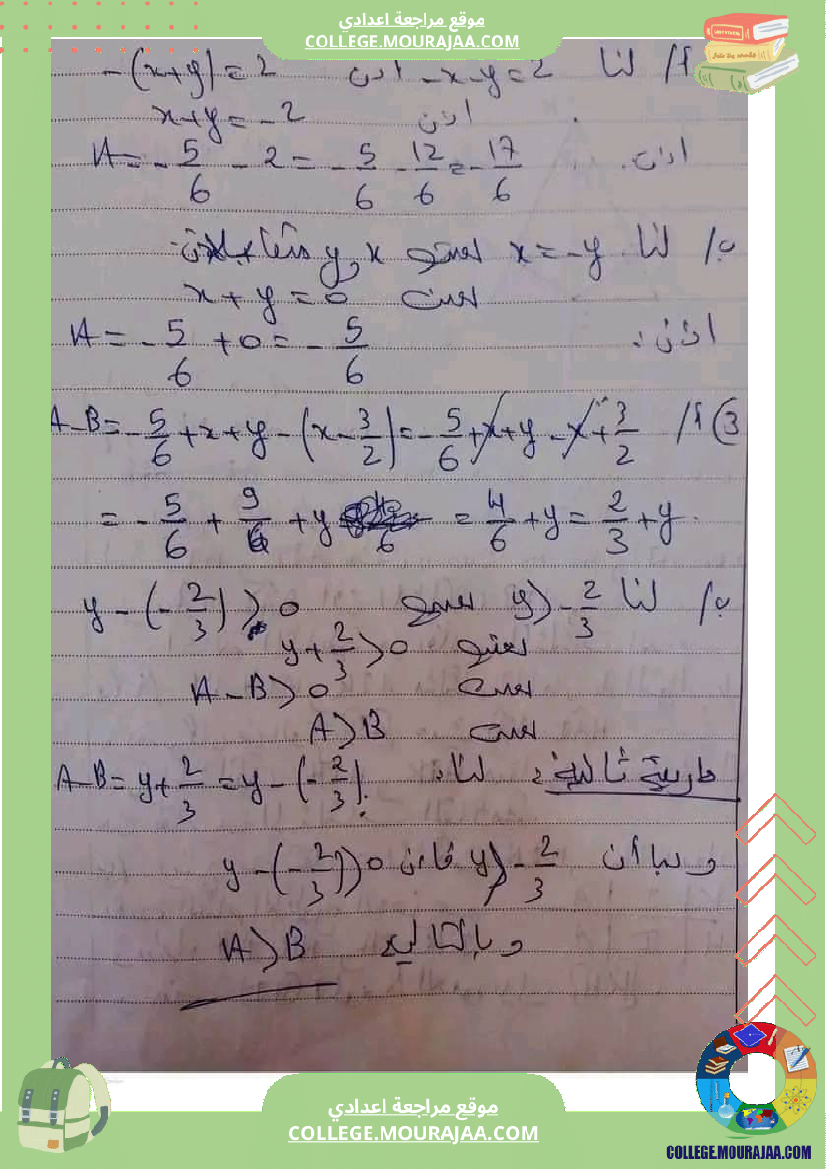 موقع مراجعة اعدادي
COLLEGE.MOURAJAA.COM
أ/ لنا -x-y=2 اذن -(x+y)=2
اذن x+y=-2
اذن. A=-5/6-2=-5/6-12/6=-17/6
ب/ لنا x=-y يعني x و y متقابلان.
يعني x+y=0
اذن: A=-5/6+0=-5/6
3) أ/ A-B=-5/6+x+y-(x-3/2)=-5/6+x+y-x+3/2
=-5/6+9/6+y =4/6+y=2/3+y.
ب/ لنا y>-2/3 يعني y-(-2/3)>0
يعني y+2/3>0
يعني A-B>0
يعني A>B
طريقة ثانية: لنا: A-B=y+2/3=y-(-2/3)
وبما أن y>-2/3 فإن y-(-2/3)>0
وبالتالي A>B
موقع مراجعة اعدادي
COLLEGE.MOURAJAA.COM
COLLEGE.MOURAJAA.COM